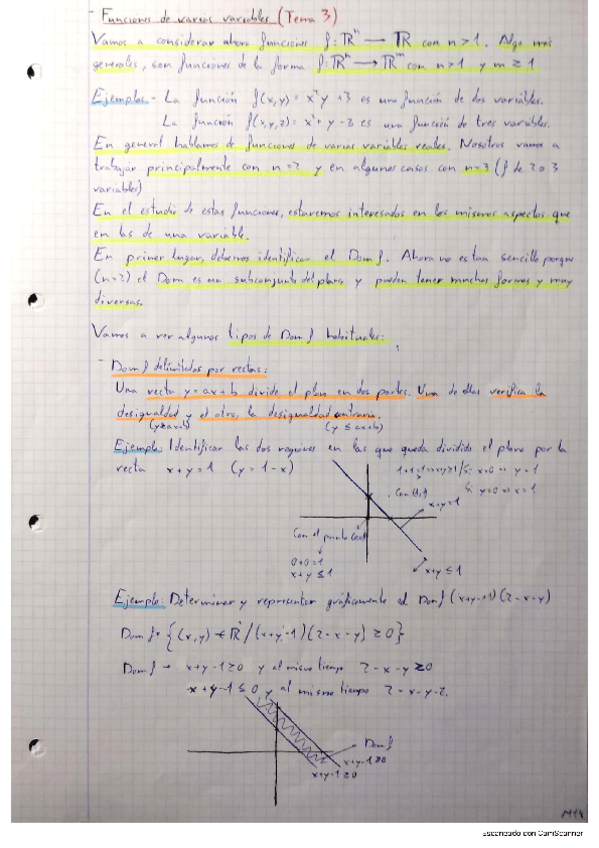 - Funciones de varias variables (Tema 3)
Vamos a considerar ahora funciones f: ℝⁿ → ℝ con n>1. Algo más
generales, son funciones de la forma f: ℝⁿ → ℝᵐ con n>1 y m ≥ 1
Ejemplos.- La función f(x,y) = x²y + 3 es una función de dos variables.
La función f(x,y,z) = x² + y - z es una función de tres variables.
En general hablamos de funciones de varias variables reales. Nosotros vamos a
trabajar principalmente con n=2 y en algunos casos con n=3 (f de 2 o 3
variables)
En el estudio de estas funciones, estaremos interesados en los mismos aspectos que
en las de una variable.
En primer lugar, debemos identificar el Dom f. Ahora no es tan sencillo porque
(n=2) el Dom es un subconjunto del plano, y pueden tener muchas formas y muy
diversas.
Vamos a ver algunos tipos de Dom f habituales:
- Dom f delimitados por rectas:
Una recta y = ax+b divide el plano en dos partes. Una de ellas verifica la
desigualdad y el otro, la desigualdad contraria.
(y≥ax+b) (y ≤ ax+b)
Ejemplo: Identificar las dos regiones en las que queda dividido el plano por la
recta x+y=1 (y = 1-x)
Si: x=0 ⇒ y=1
Si y=0 ⇒ x=1
Con (1,1)
x+y=1
Con el punto
0+0=1
x+y ≤ 1
x+y ≤ 1
Ejemplo: Determinar y representar gráficamente el Dom f (x+y-1)(2-x-y)
Dom f = {(x,y) ∈ ℝ² / (x+y-1)(2-x-y) ≥ 0}
Dom f → x+y-1≥0 y al mismo tiempo 2-x-y≥0
x+y-1 ≤ 0 y al mismo tiempo 2-x-y
Dom f
x+y-1≥0
x+y-1≥0
Escaneado con CamScanner